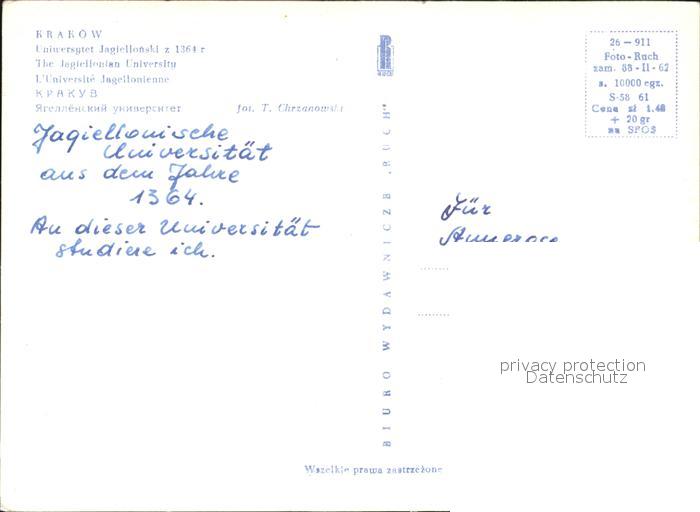 KRAKÓW
Uniwersytet Jagielloński z 1364 r
The Jagiellonian University
L'Université Jagellonienne
КРАКУВ
Ягеллёнский университет fot. T. Chrzanowski
Jagiellonische
Universität
aus dem Jahre
1364.
An dieser Universität
studiere ich.
RUCH
BIURO WYDAWNICZE „RUCH"
26 — 911
Foto-Ruch
zam. 88-II-62
n. 10000 egz.
S-58 61
Cena zł 1.40
+ 20 gr
na SFOS
Für
privacy protection
Datenschutz
Wszelkie prawa zastrzeżone